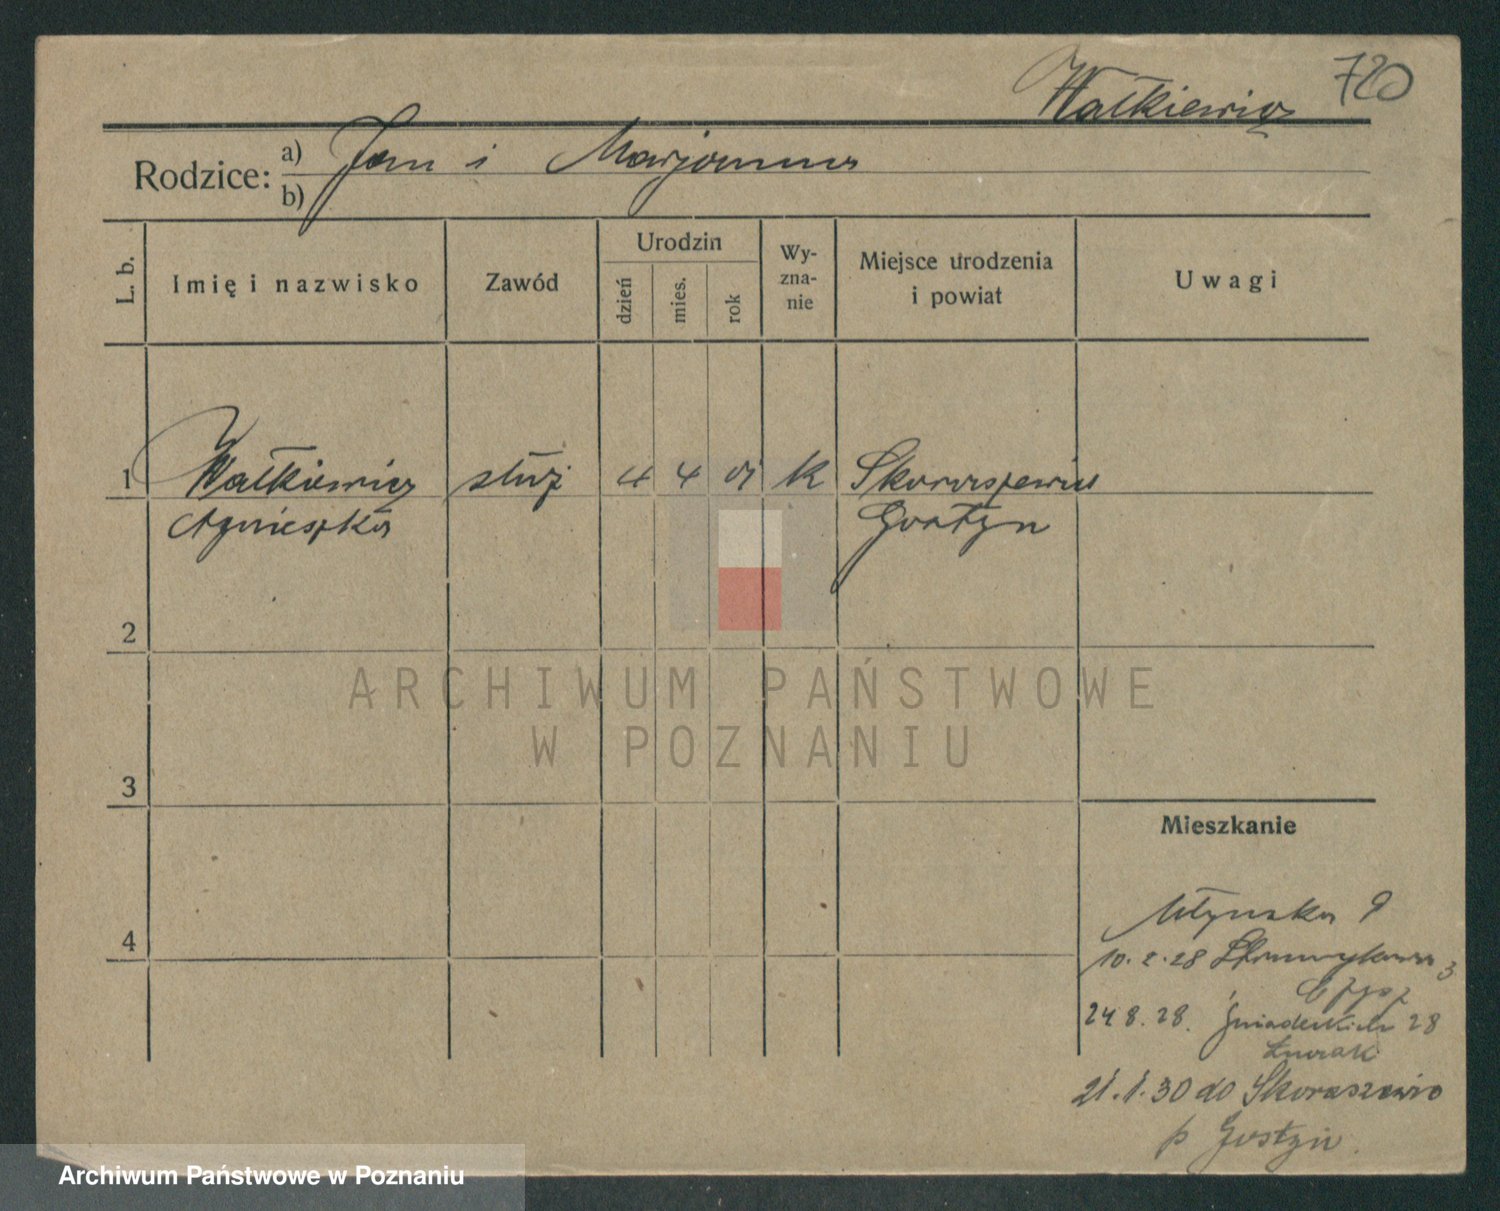 Wałkiewicz 720
Rodzice: a) Jan i Marjanna
b)
L. b. Imię i nazwisko Zawód Urodzin dzień mies. rok Wy-zna-nie Miejsce urodzenia i powiat Uwagi
1 Wałkiewicz służ 4 4 01 k Skoraszewice
Agnieszka Gostyn
2
ARCHIWUM PAŃSTWOWE
W POZNANIU
3
Mieszkanie
4
Młyńska 9
10.2.28 3
24.8.28. Śniadeckich 28
21.1.30 do Skoraszewic
p Gostyń.
Archiwum Państwowe w Poznaniu